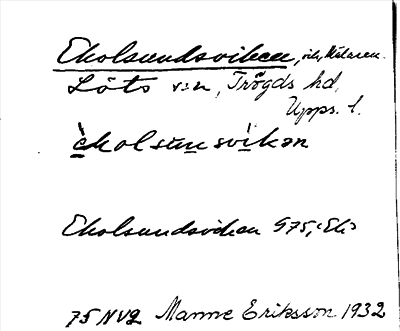 Ekolsundsviken, vik, Mälaren.
Löts sn, Trögds hd,
Upps. l.
èkolsu̲nsvìkən
Ekolsundsviken G75, Ek
75 NV2 Manne Eriksson 1932